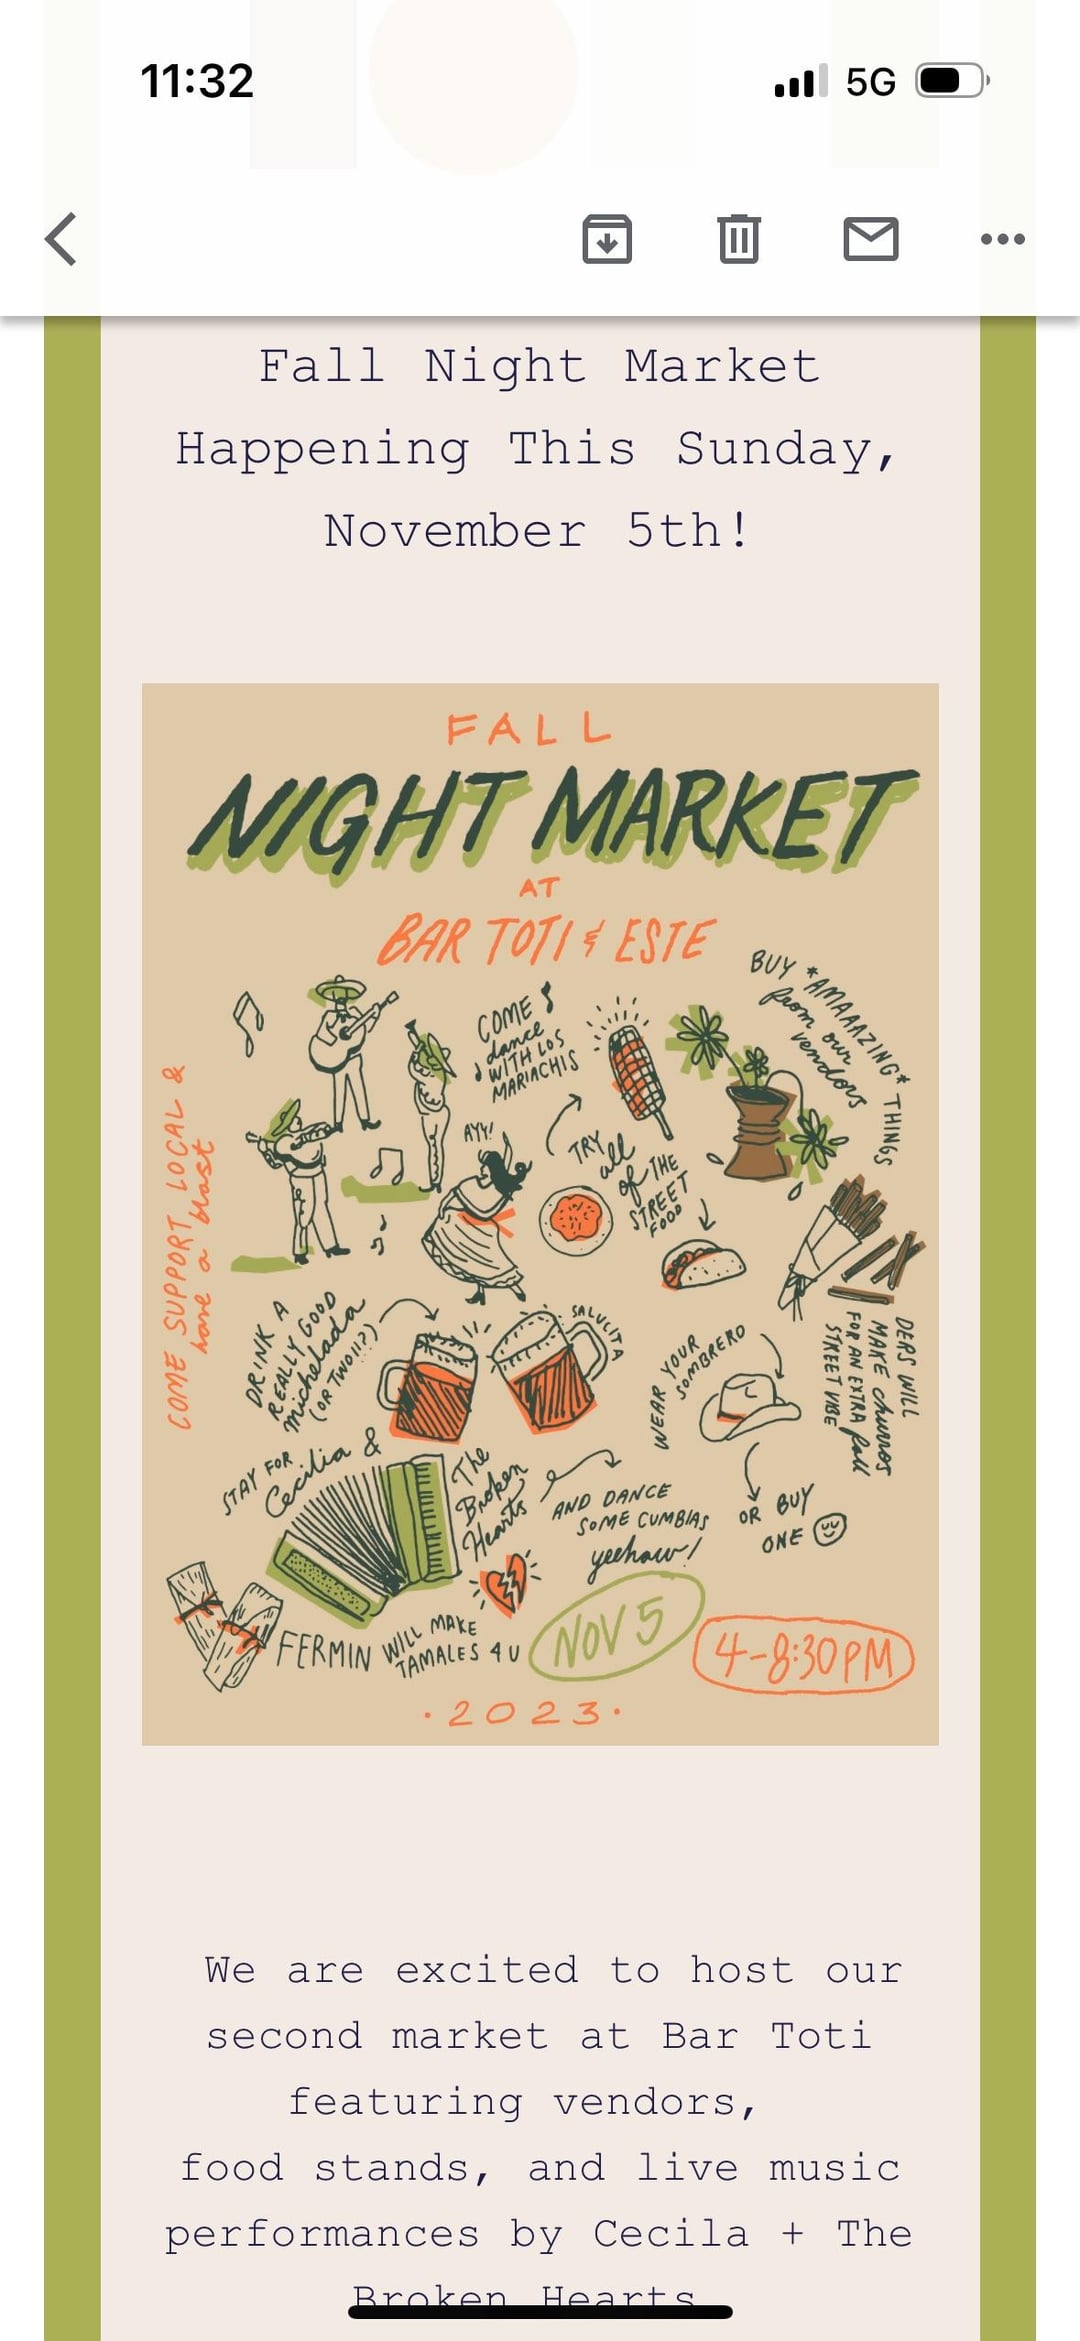 11:32
5G
Fall Night Market
Happening This Sunday,
November 5th!
FALL
NIGHT MARKET
AT
BAR TOTI & ESTE
BUY *AMAAAZING* THINGS
from our
vendors
COME
dance
WITH LOS
MARIACHIS
AYY!
TRY
all
of THE
STREET
FOOD
COME SUPPORT LOCAL &
have a blast
DRINK A
REALLY GOOD
michelada
(OR TWO!!?)
SALUCITA
WEAR YOUR
SOMBRERO
OR BUY
ONE
DERS WILL
MAKE churros
FOR AN EXTRA fall
STREET VIBE
STAY FOR
Cecilia &
The
Broken
Hearts
AND DANCE
SOME CUMBIAS
yeehaw!
FERMIN WILL MAKE
TAMALES 4 U
NOV 5
4-8:30PM
·2023·
We are excited to host our
second market at Bar Toti
featuring vendors,
food stands, and live music
performances by Cecila + The
Broken Hearts